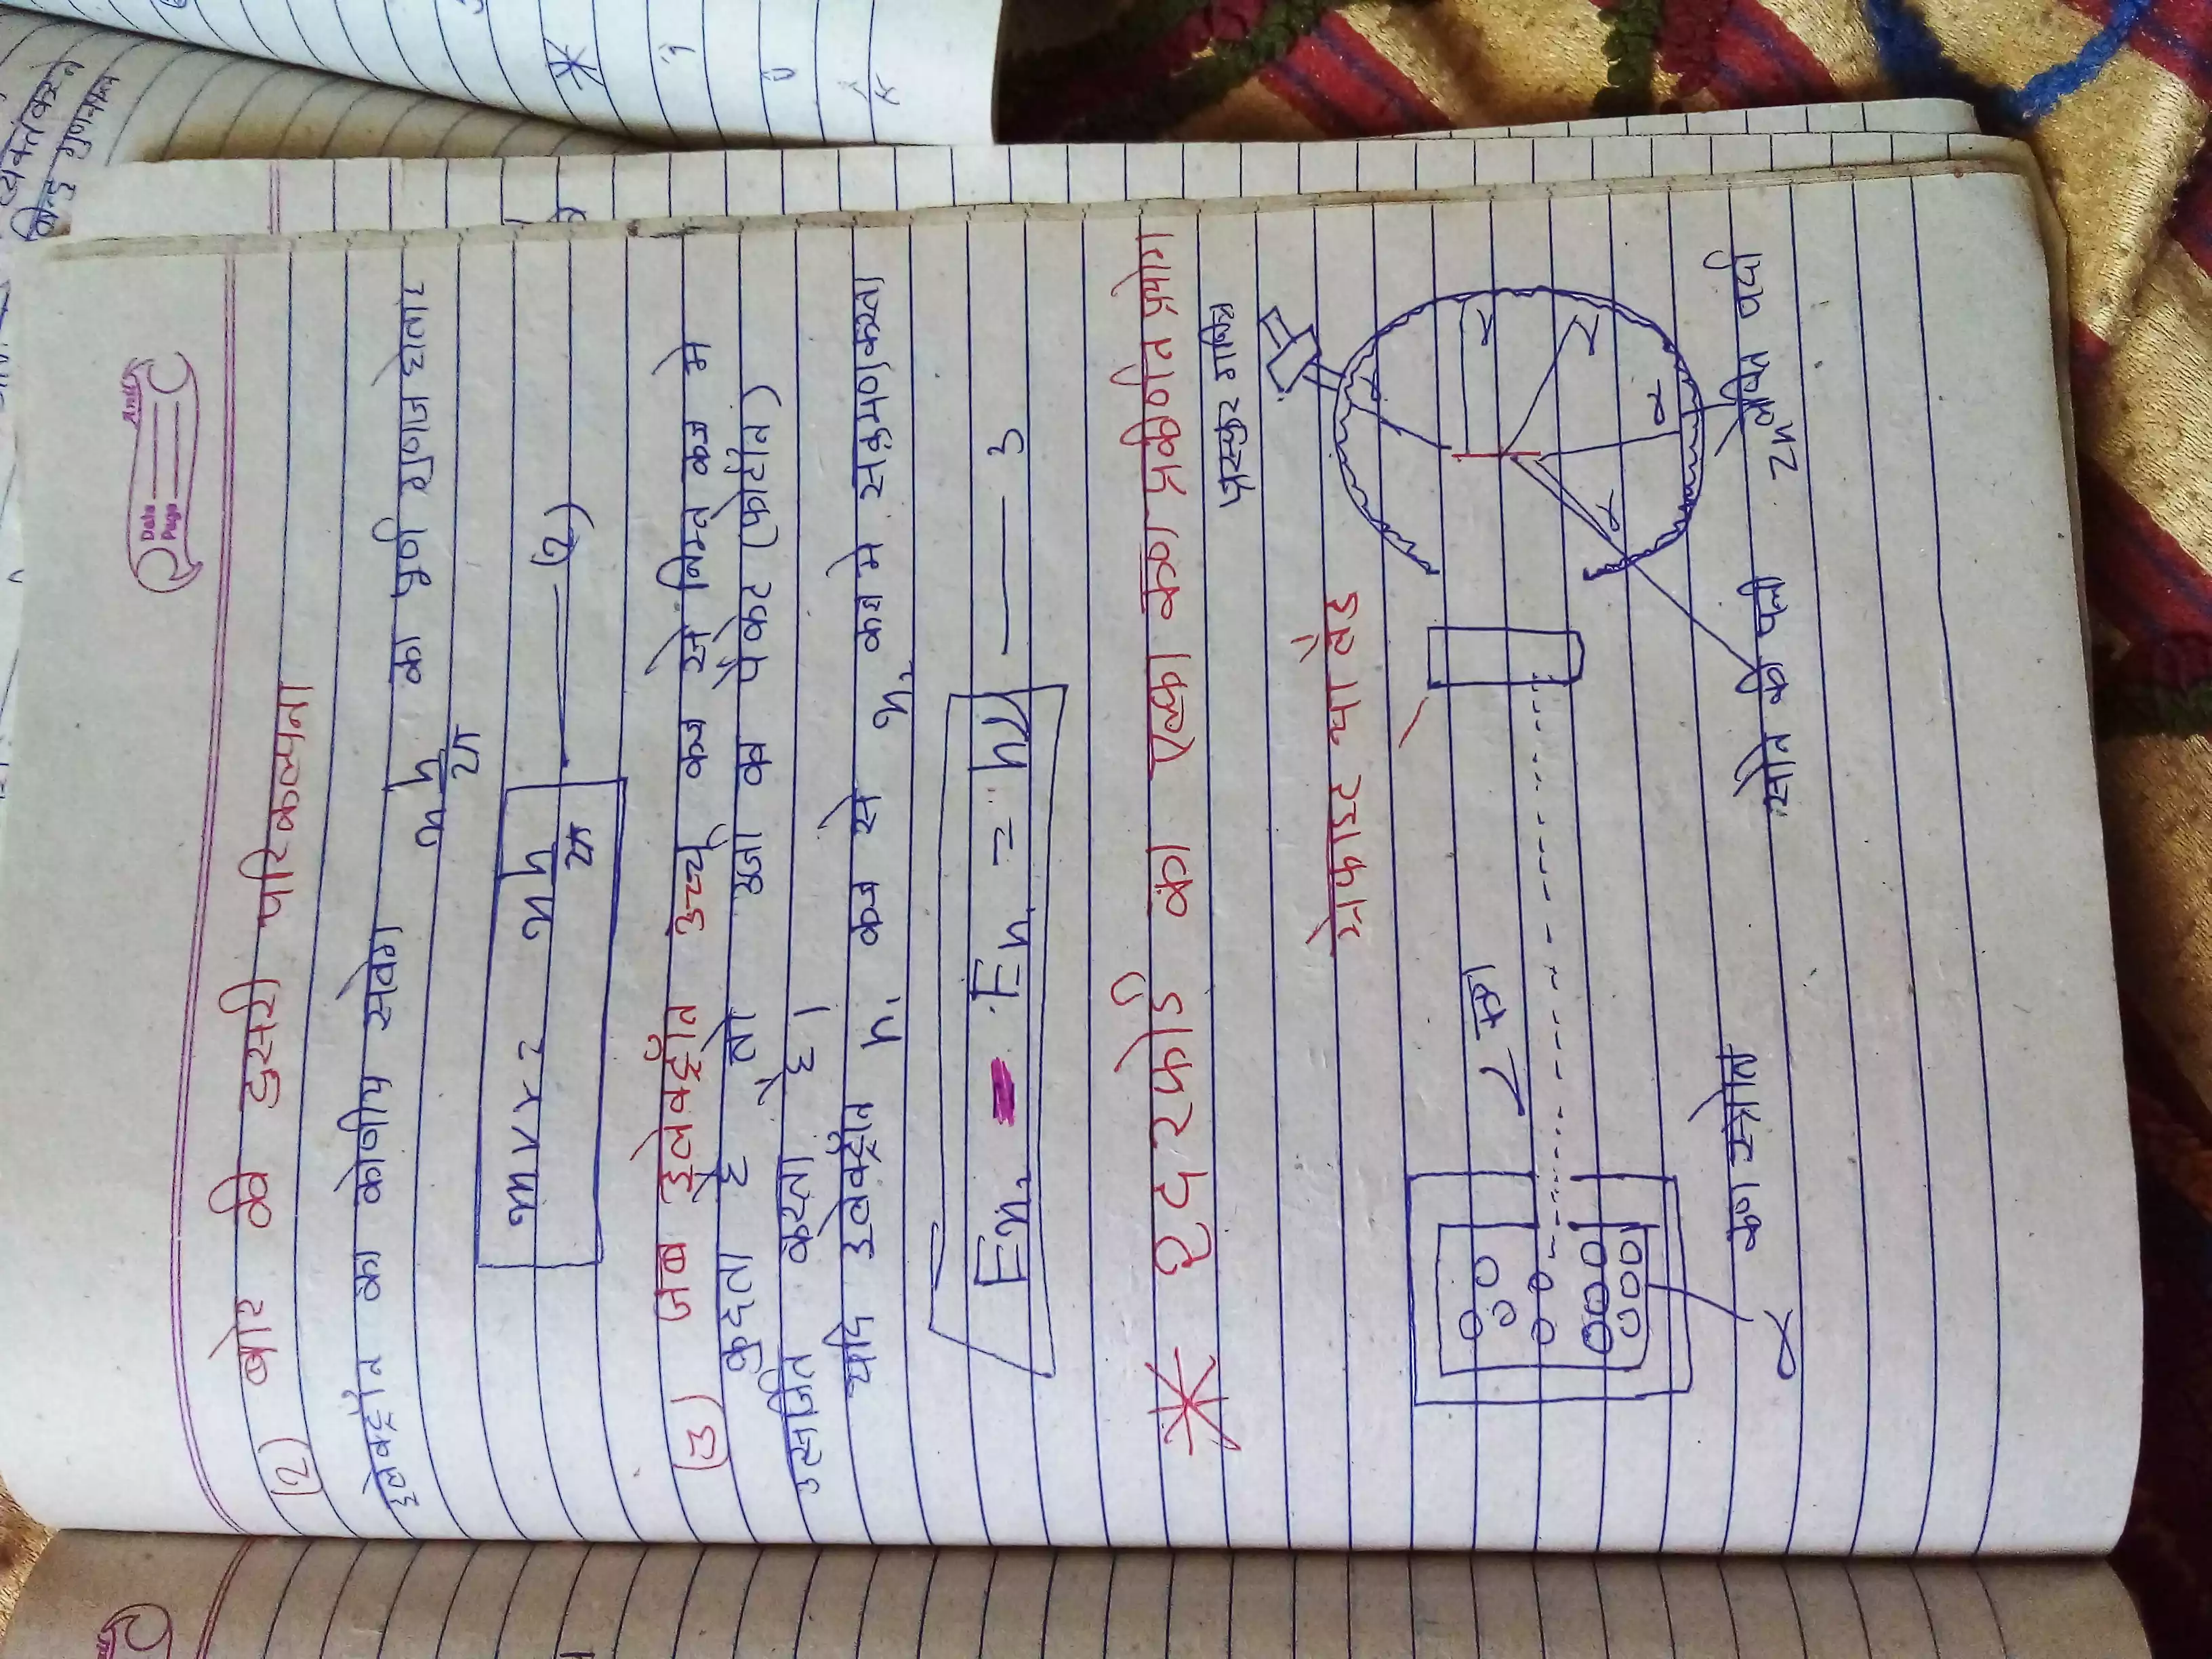 Date
Page
(2) बोर की दुसरी परिकल्पना
इलेक्ट्रॉन का कोणीय संवेग n h/2π का पुर्ण गुणज होता है
mvr = nh/2π —— (2)
(3) जब इलेक्ट्रॉन उच्च कक्ष से निम्न कक्ष मे
कुदता है तो उर्जा का पैकेट (फोटॉन)
उत्सर्जित करता है।
यदि इलेक्ट्रॉन n₁ कक्ष से n₂ कक्ष मे संक्रमण करता
En₂ - En₁ = hν —— 3
* रदरफोर्ड का एल्फा कण प्रकीर्णन प्रयोग
α कण
α
α
α
कण स्त्रोत
सोने की पन्नी
Zn लेपित पर्दा
α